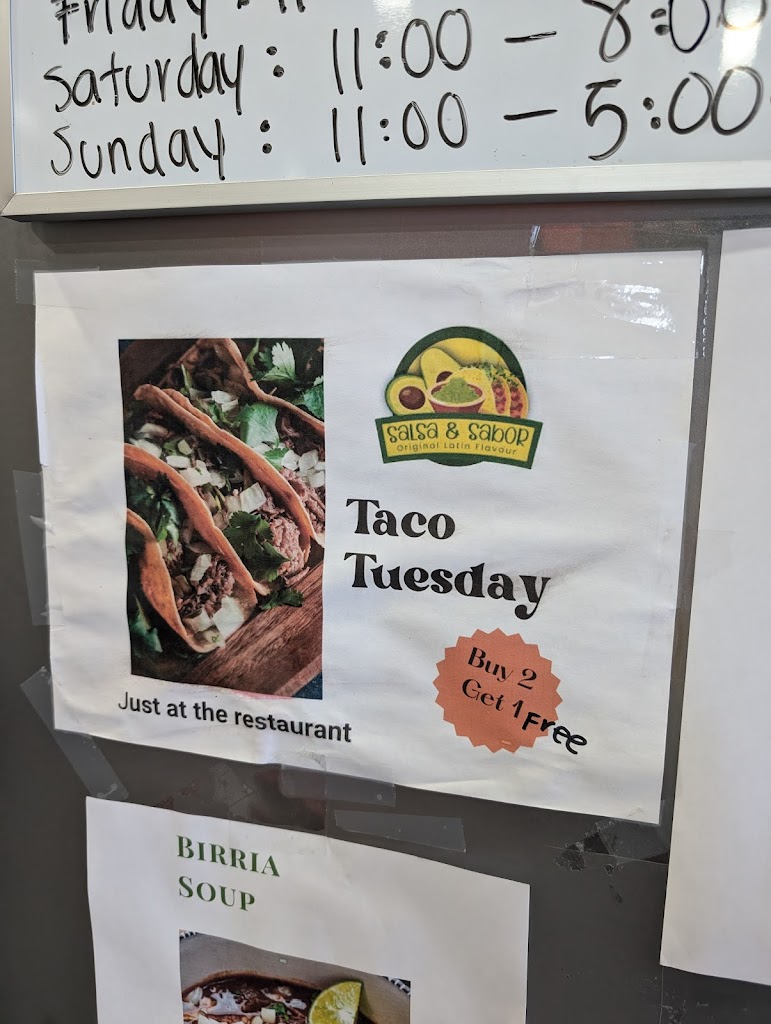 Friday : 11
Saturday : 11:00 – 8:00
Sunday : 11:00 – 5:00
Salsa & Sabor
Original Latin Flavour
Taco
Tuesday
Buy 2
Get 1 Free
Just at the restaurant
BIRRIA
SOUP